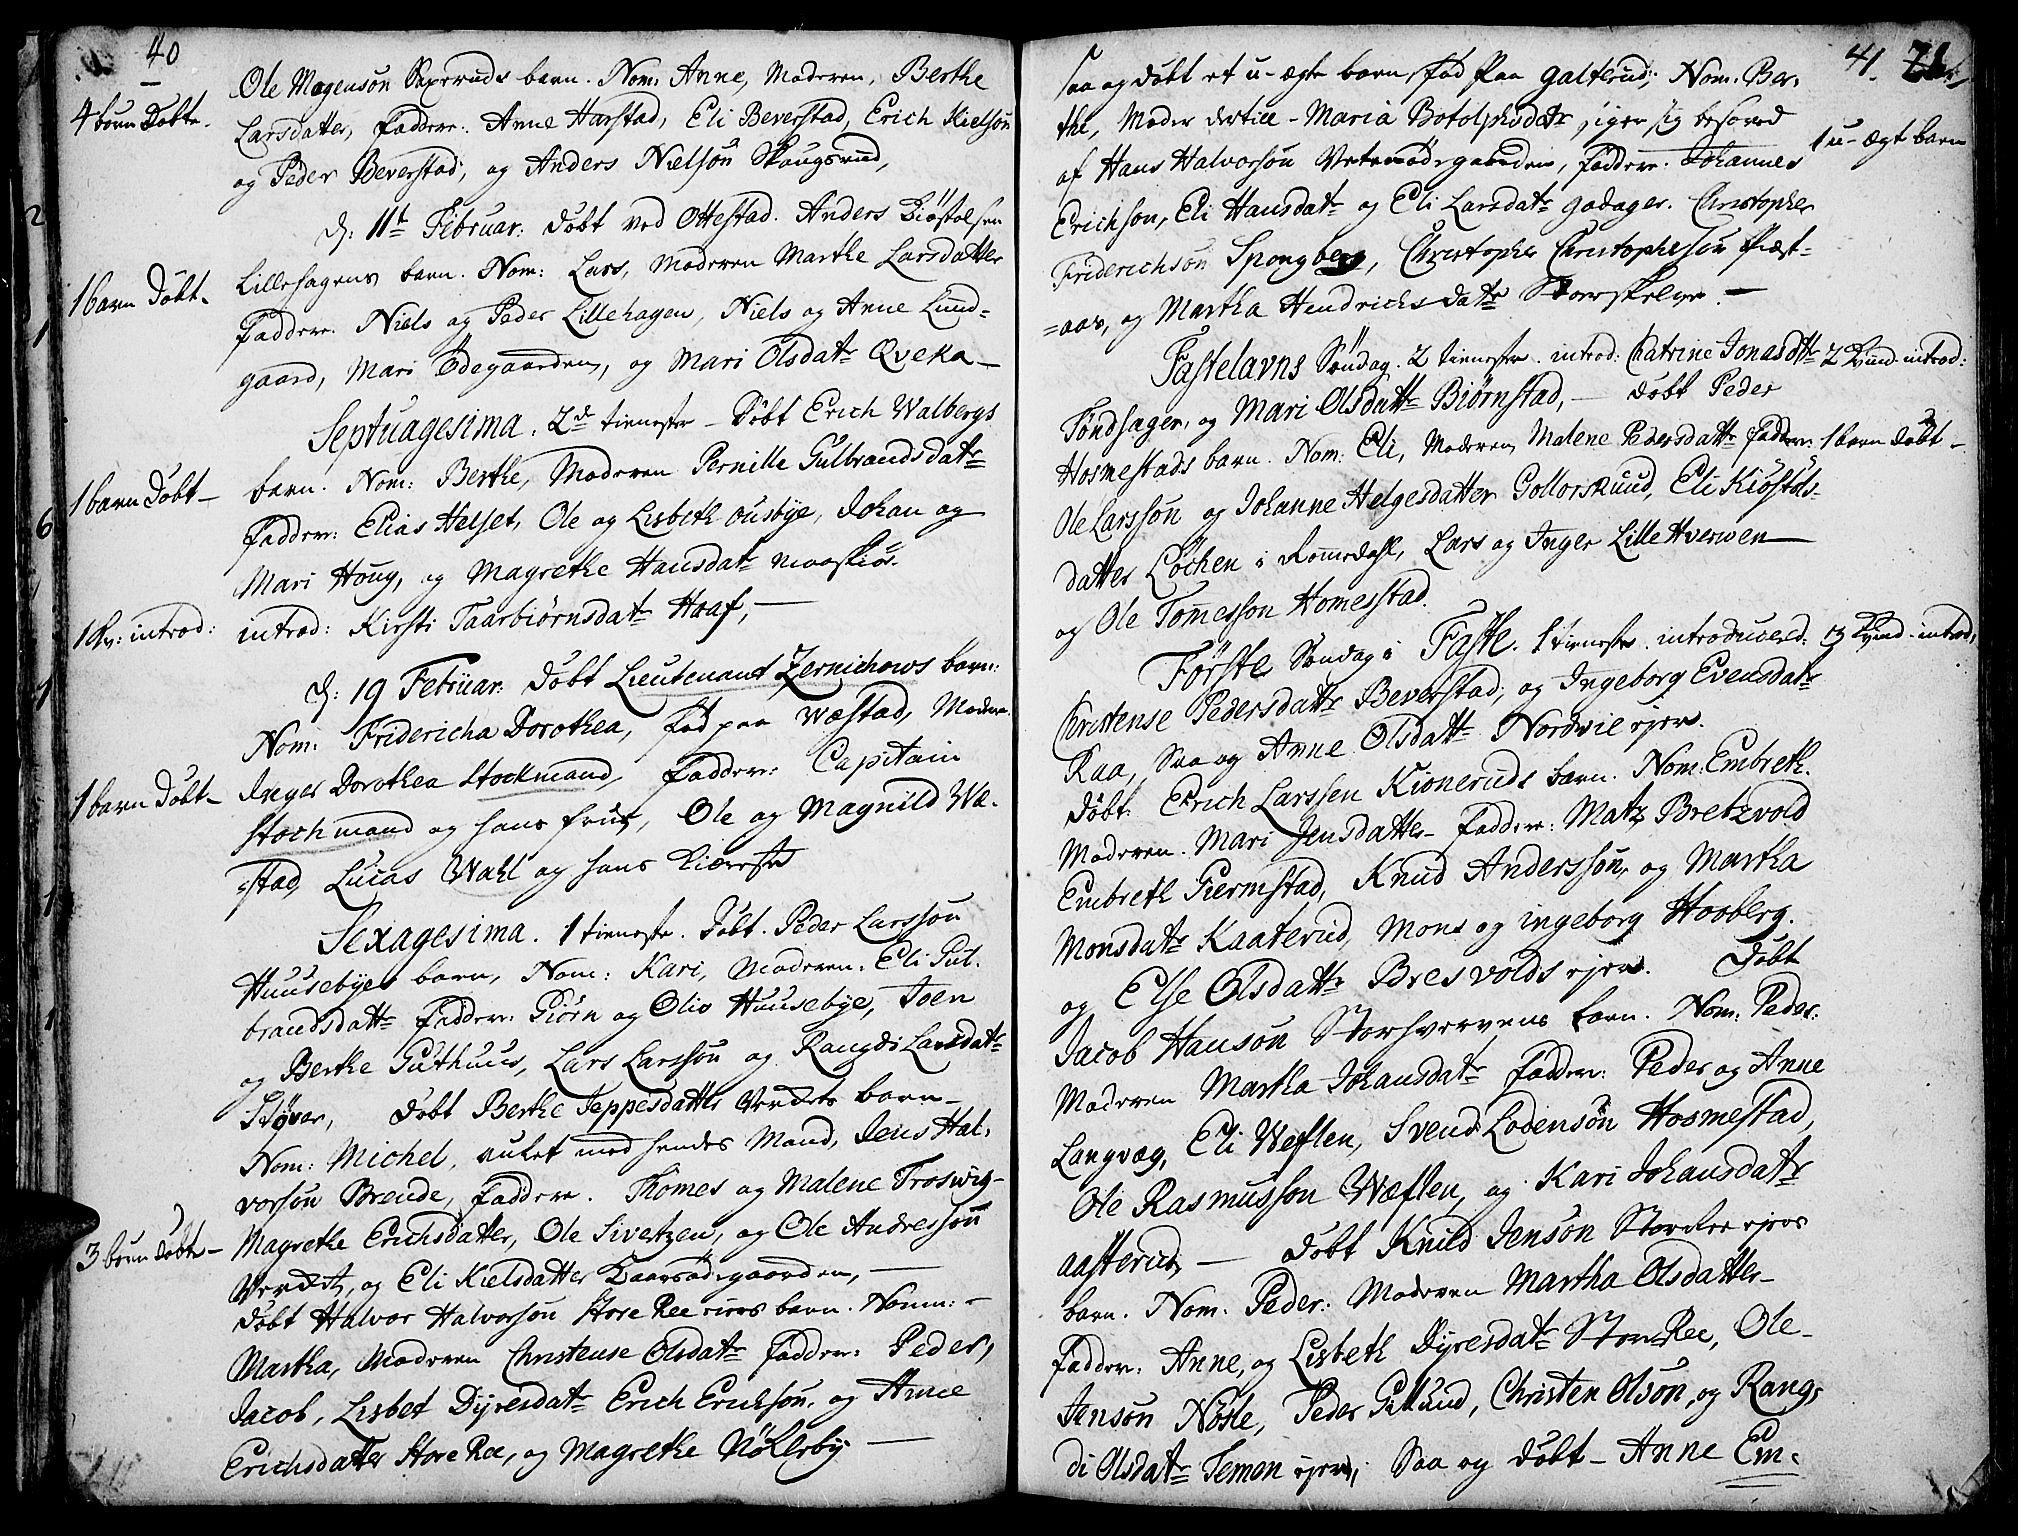 40
Ole Magensøn Saxeruds barn. Nom: Anne, Moderen, Berthe
4 børn Døbte.
Larsdatter, Faddere: Anne Harstad, Eli Beverstad, Erich Kielsøn
og Peder Beverstad, og Anders Nielsøn Skougsrud,
D: 11t Februar: Døbt ved Ottestad. Anders Kiøstolsen
1 barn Døbt-
Lillehagens barn. Nom: Lars, Moderen Marthe Larsdatter
Faddere. Niels og Peder Lillehagen, Niels og Anne Lund-
gaard, Mari Ödegaarden, og Mari Olsdatr Qveka-
Septuagesima. 2de tieneste - Døbt Erich Walbergs
1 barn Døbt-
barn. Nom: Berthe, Moderen Pernille Gulbrandsdatr
Faddere: Elias Helset, Ole og Lisbeth ousbye, Johan og
Mari Houg, og Magrethe Hansdatr
1 Kv: introd:
introd: Kirsti Taarbiørnsdatr Haaf, -
D: 19 Februar: Døbt Lieutenant Zernichows barn:
Nom: Fridericha Dorothea, fød paa Wæstad, Moder
1 barn Døbt-
Inger Dorothea Stockmand, Faddere: Capitain
Stochmand og hans frue, Ole og Magnild Wæ-
stad, Lucas Wahl og hans Kiæreste
Sexagesima. 1 tieneste. Døbt. Peder Larssøn
Huusebyes barn, Nom: Kari, Moderen. Eli Gul-
brandsdattr Faddere: Giörn og Oliv Huusebye, Joen
og Berthe Guthuus, Lars Larssøn og Rangdi Larsdatr
Støver, Døbt Berthe Jeppesdatter barn-
Nom: Michel, med hendes Mand, Jens Hal-
vorsøn Brende, Faddere. Thomes og Malene Troswig-
3 børn døbte-
Magrethe Erichsdatter, Ole Sivertzen, og Ole Andressøn
og Eli Kielsdatter
Døbt Halvor Halvorsøn Store Ree eiers barn. Nomn: -
Martha, Moderen Christense Olsdatr Faddere: Peder,
Jacob, Lisbet Dyresdatr Erich Erichsøn, og Anne
Erichsdatter Store Ree, og Magrethe Nøkleby -
41.
Saa og døbt et u-ægte barn, fød paa Galterud; Nom. Ber-
the, Moder dertill - Maria Botolphsdatr siger sig besovet
1 u-ægt barn
af Hans Halvorsøn Faddere. Johannes
Erichsøn, Eli Hansdatr og Eli Larsdatr Godager. Christopher
Friderichsøn Spongberg, Christopher Christophersøn Præst-
=aar, og Martha Hendrichsdatr -
Fastelavns Søndag. 2 tieneste. introd: Catrine Jonasdtr
2 Kvind. introd:
Tøndhagen, og Mari Olsdattr Biørnstad, - Døbt Peder
Hosmestads barn. Nom: Eli, Moderen Malene Pedersdattr Faddere:
1 barn døbt-
Ole Larssøn og Johanne Helgesdatter Gollorskuud, Eli Kiöstols-
datter Löchen i Romedahl, Lars og Inger Lille Hverwen -
og Ole Tomessøn Homesstad.
Første Søndag i Faste. 1 tieneste. introducered:
3 Kvind. introd,
Christense Pedersdattr Beverstad, og Ingeborg Evensdatr
Raa, Saa og Anne Olsdattr Nordvie ejers.
Døbt. Erich Larssen Kioneruds barn. Nom: Embreth.
Moderen. Mari Jensdatter - Faddere: Matz Bretzvold
Embreth Giermstad, Knud Anderssøn, og Martha
Monsdatr Kaaterud, Mons og ingeborg Hosberg.
og Else Olsdattr Bresvolds ejers. Døbt
Jacob Hansøn Storhvervens barn. Nom: Peder.
Moderen Martha Johansdatr Faddere: Peder og Anne
Langvæg, Eli Weflen, Svend Lodensøn Hosmestad,
Ole Rasmussøn Wæflen, og Kari Johansdatr
aasterud, - Døbt Knud Jensøn Storeree ejers
barn. Nom: Peder. Moderen Martha Olsdatter -
Faddere: Anne, og Lisbeth Dyresdatr Store Ree, Ole -
Jensøn Nøsle, Peder Gillund, Christen Olsøn, og Rang-
di Olsdatr Temen ejers; Saa og døbt - Anne Em-